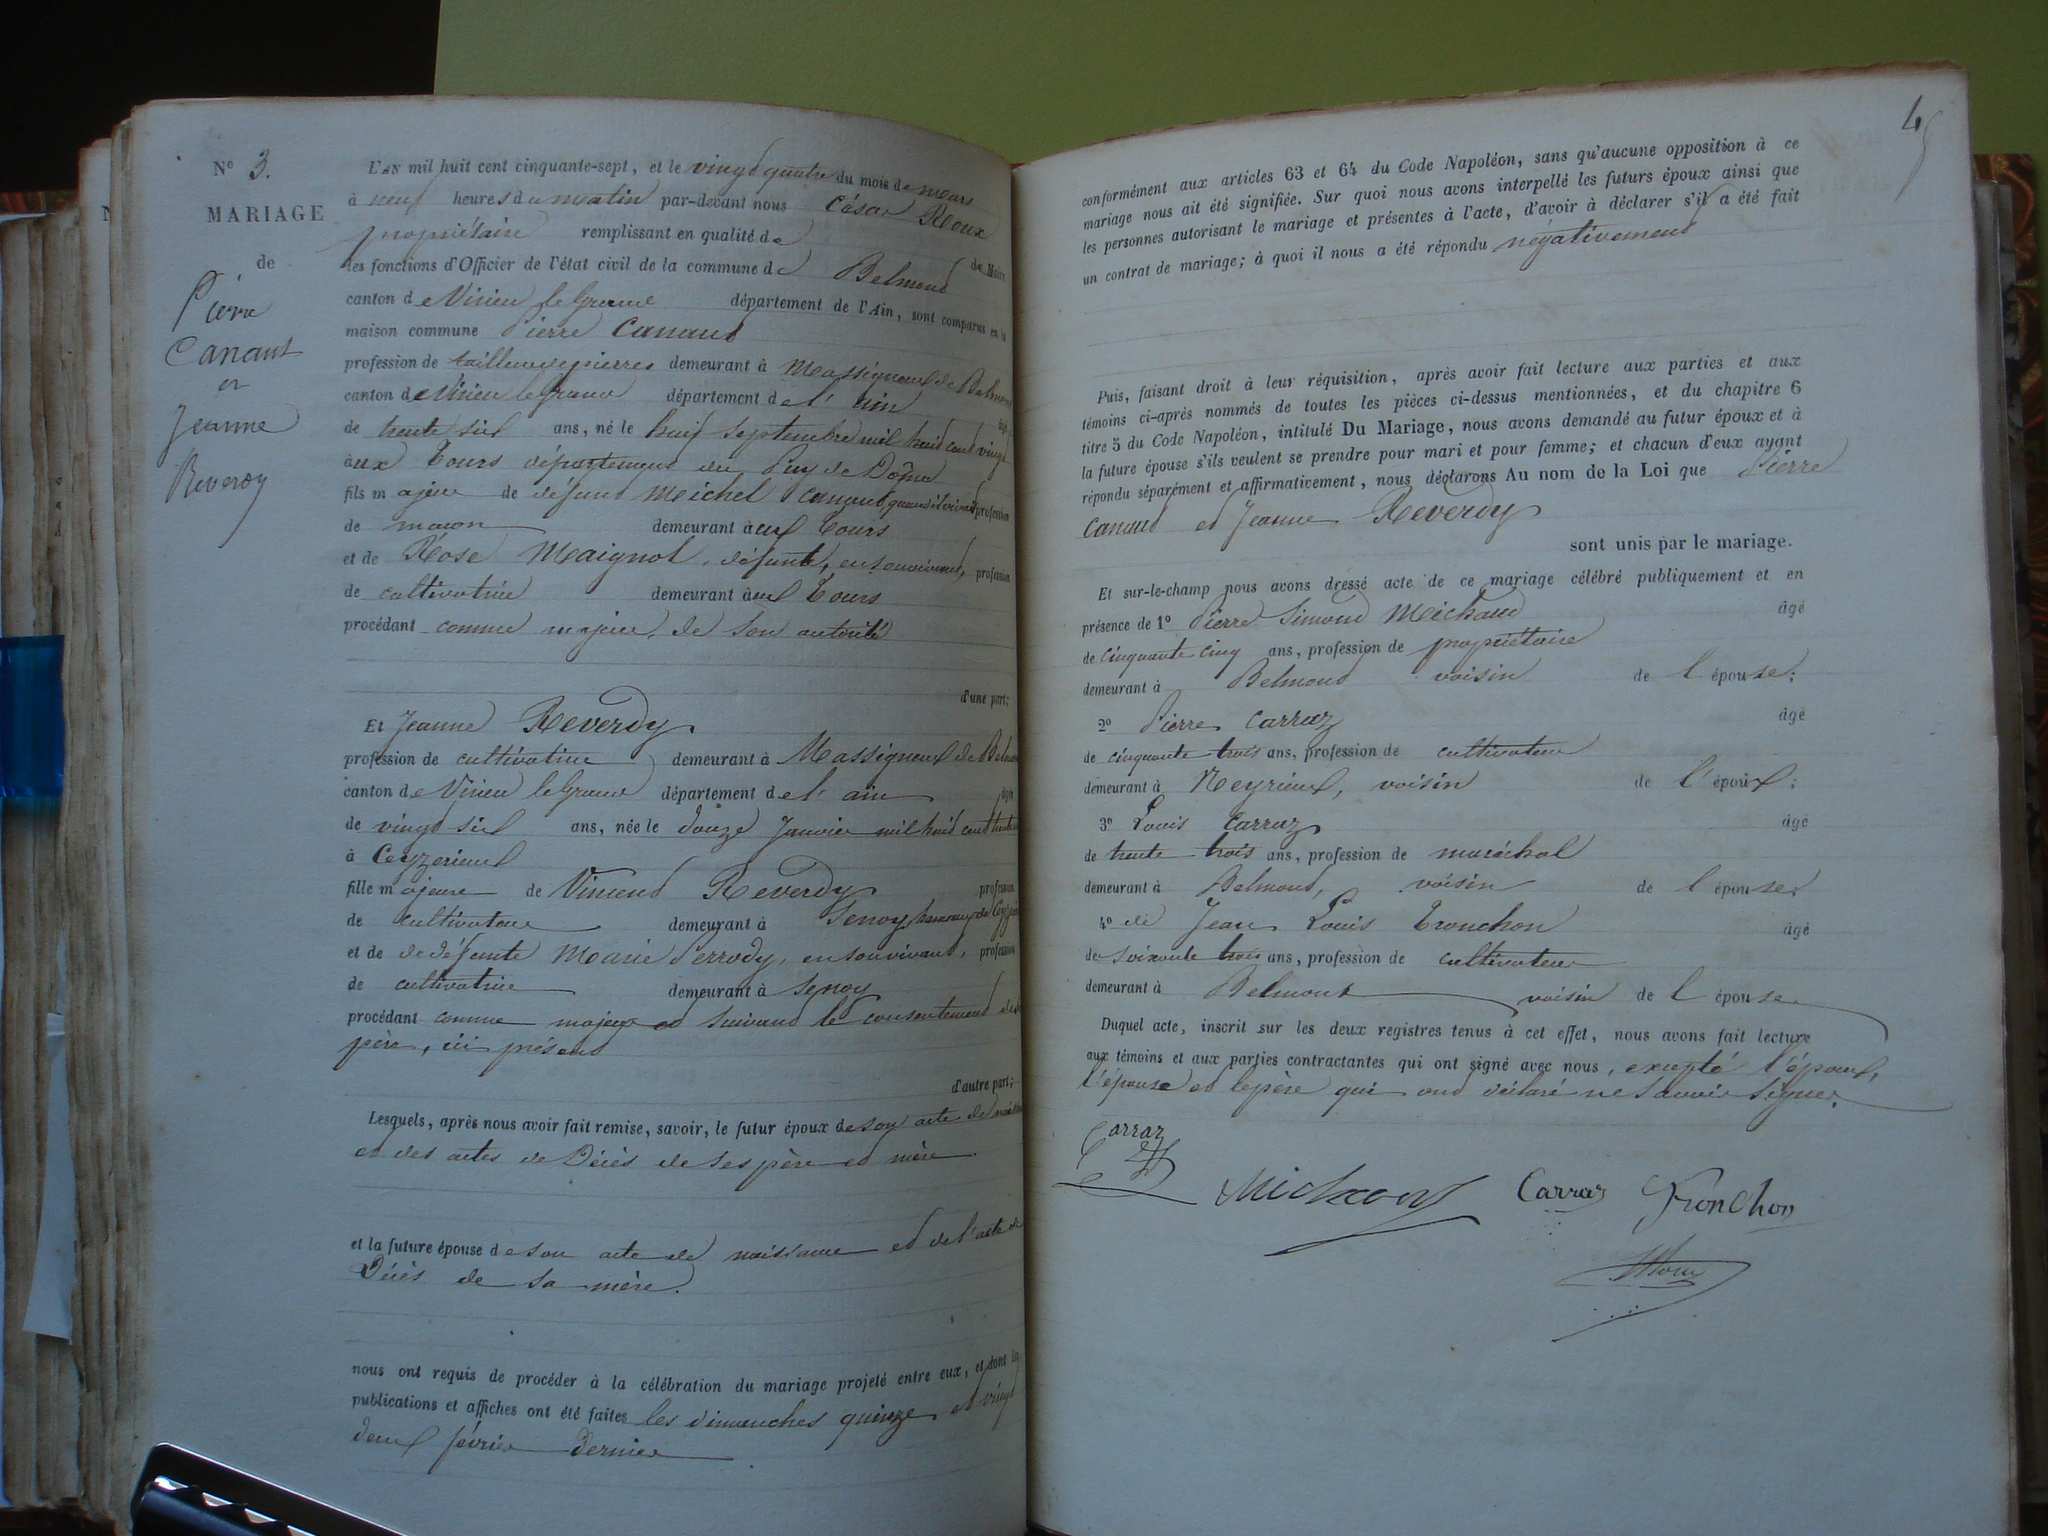 N° 3.
MARIAGE
de
Pierre
Canaut
et
Jeanne
Reverdy
L'AN mil huit cent cinquante-sept, et le vingt quatre du mois de mars
à neuf heures du matin par-devant nous César Roux
propriétaire remplissant en qualité de de Maire
les fonctions d'Officier de l'état civil de la commune de Belmont
canton de Virieu le Grand département de l'Ain, sont comparus en la
maison commune Pierre Canaut
profession de tailleur de pierres demeurant à Massigneux de Belmont
canton de Virieu le Grand département de l'ain âgé
de trente six ans, né le huit septembre mil huit cent vingt
aux Tours département du Puy de Dôme
fils majeur de défunt Michel Canaut, quand il vivait profession
de maçon demeurant aux Tours
et de Rose Maignol, défunte, en son vivant, profession
de cultivatrice demeurant aux Tours
procédant comme majeur, de son autorité
d'une part;
Et Jeanne Reverdy
profession de cultivatrice demeurant à Massigneux de Belmont
canton de Virieu le Grand département de l'ain âgée
de vingt six ans, née le douze Janvier mil huit cent trente
à Ceyzerieux
fille majeure de Vincent Reverdy profession
de cultivateur demeurant à Senoy, hameau de
et de de défunte Marie Perrody, en son vivant, profession
de cultivatrice demeurant à Senoy
procédant comme majeure et suivant le consentement de
père, ici présent
d'autre part;
Lesquels, après nous avoir fait remise, savoir, le futur époux de son acte de naissance
et des actes de Décès de ses père et mère
et la future épouse de son acte de naissance et de l'acte de
Décès de sa mère.
nous ont requis de procéder à la célébration du mariage projeté entre eux, et dont les
publications et affiches ont été faites les dimanches quinze et vingt
deux février dernier
4
conformément aux articles 63 et 64 du Code Napoléon, sans qu'aucune opposition à ce
mariage nous ait été signifiée. Sur quoi nous avons interpellé les futurs époux ainsi que
les personnes autorisant le mariage et présentes à l'acte, d'avoir à déclarer s'il a été fait
un contrat de mariage; à quoi il nous a été répondu négativement
Puis, faisant droit à leur réquisition, après avoir fait lecture aux parties et aux
témoins ci-après nommés de toutes les pièces ci-dessus mentionnées, et du chapitre 6
titre 5 du Code Napoléon, intitulé Du Mariage, nous avons demandé au futur époux et à
la future épouse s'ils veulent se prendre pour mari et pour femme; et chacun d'eux ayant
répondu séparément et affirmativement, nous déclarons Au nom de la Loi que Pierre
Canaut et Jeanne Reverdy
sont unis par le mariage.
Et sur-le-champ nous avons dressé acte de ce mariage célébré publiquement et en
présence de 1° Pierre Simond Michaud âgé
de cinquante cinq ans, profession de propriétaire
demeurant à Belmont voisin de l'épouse;
2° Pierre Carraz âgé
de cinquante trois ans, profession de cultivateur
demeurant à Neyrieux, voisin de l'époux;
3° Louis Carraz âgé
de trente trois ans, profession de maréchal
demeurant à Belmont, voisin de l'épouse,
4° de Jean Louis Tronchon âgé
de soixante trois ans, profession de cultivateur
demeurant à Belmont voisin de l'épouse
Duquel acte, inscrit sur les deux registres tenus à cet effet, nous avons fait lecture
aux témoins et aux parties contractantes qui ont signé avec nous, excepté l'époux,
l'épouse et le père qui ont déclaré ne savoir signer.
Carraz
Michaud Carraz Tronchon
Roux